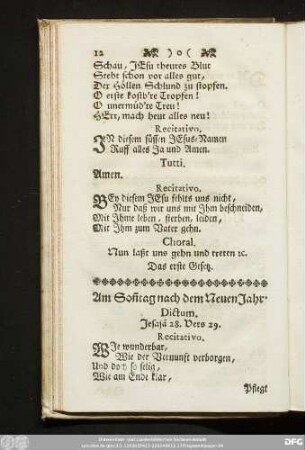 12 ) o (
Schau, JEsu theures Blut
Steht schon vor alles gut,
Der Höllen Schlund zu stopfen.
O erste kostb're Tropfen!
O unermüd'te Treu!
HErr, mach heut alles neu!
Recitativo.
IN diesem süssen JEsus-Namen
Ruff alles Ja und Amen.
Tutti.
Amen.
Recitativo.
BEy diesem JEsu fehlts uns nicht,
Nur daß wir uns mit Jhm beschneiden,
Mit Jhme leben, sterben, leiden,
Mit Jhm zum Vater gehn.
Choral.
Nun laßt uns gehn und tretten ꝛc.
Das erste Gesetz.
Am Soñtag nach dem Neuen Jahr.
Dictum.
Jesajä 28. Vers 29.
Recitativo.
WJe wunderbar,
Wie der Vernunft verborgen,
Und doch so selig,
Wie am Ende klar,
Pflegt
DFG